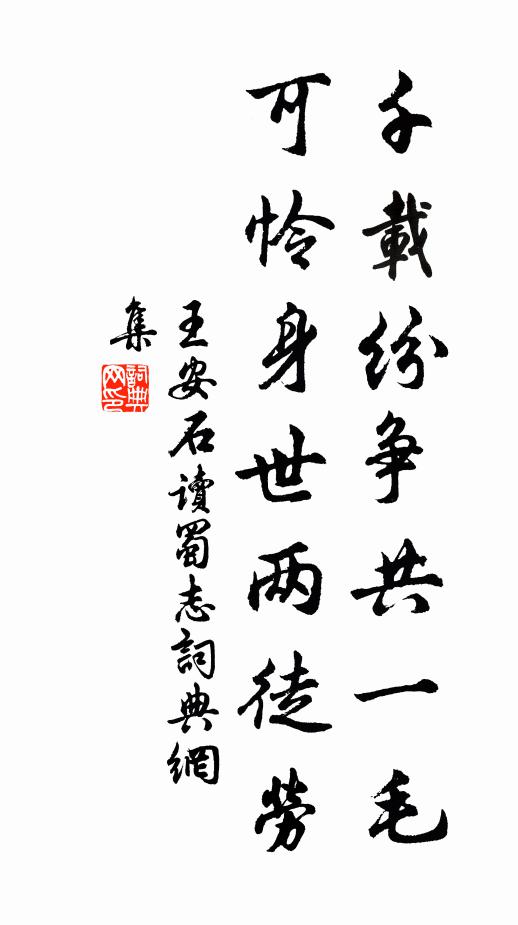 千載紛争共一毛
可怜身世两徒勞
王安石讀蜀志詞典網
集
詞典网印